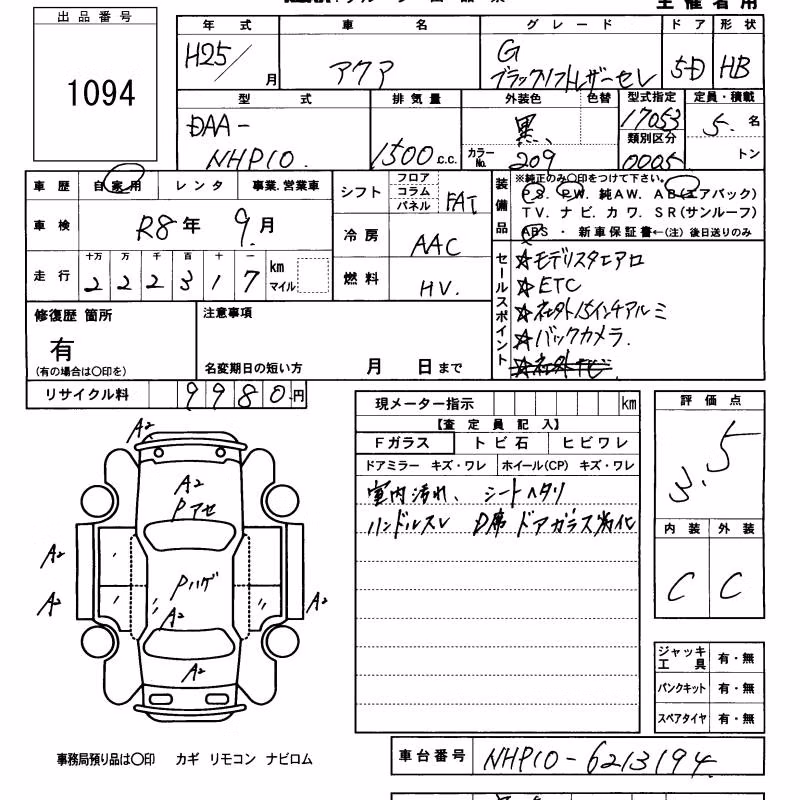 出品番号
1094
年式 車名 グレード ドア 形状
H25/ 月 アクア G 5D HB
ブラックソフトレザーセレ
型式 排気量 外装色 色替 型式指定 定員・積載
DAA- 黒 17053 5 名
類別区分
NHP10 1500 c.c. カラーNo. 209 0005 トン
車歴 自家用 レンタ 事業.営業車 シフト フロア コラム パネル FAT
車検 R8年 9月 冷房 AAC
走行 十万 万 千 百 十 一
222317 km マイル 燃料 HV.
装備品 ※純正のみ〇印をつけて下さい。
PS. PW. 純AW. AB(エアバッグ)
TV. ナビ. カワ. SR(サンルーフ)
ABS・新車保証書←(注)後日送りのみ
セールスポイント
☆モデリスタエアロ
☆ETC
☆社外15インチアルミ
☆バックカメラ
☆社外TV
修復歴 箇所 注意事項
有
(有の場合は〇印を) 名変期日の短い方 月 日まで
リサイクル料 9980円
現メーター指示 km
【査定員記入】
Fガラス トビ石 ヒビワレ
ドアミラー キズ・ワレ ホイール(CP) キズ・ワレ
室内汚れ、シートヘタリ
ハンドルスレ D席ドアガラス劣化
評価点
3.5
内装 外装
C C
A2
A2
Pアセ
A2
A2
Pハゲ
A2
A2
A2
ジャッキ工具 有・無
パンクキット 有・無
スペアタイヤ 有・無
事務局預り品は〇印 カギ リモコン ナビロム
車台番号 NHP10-6213194